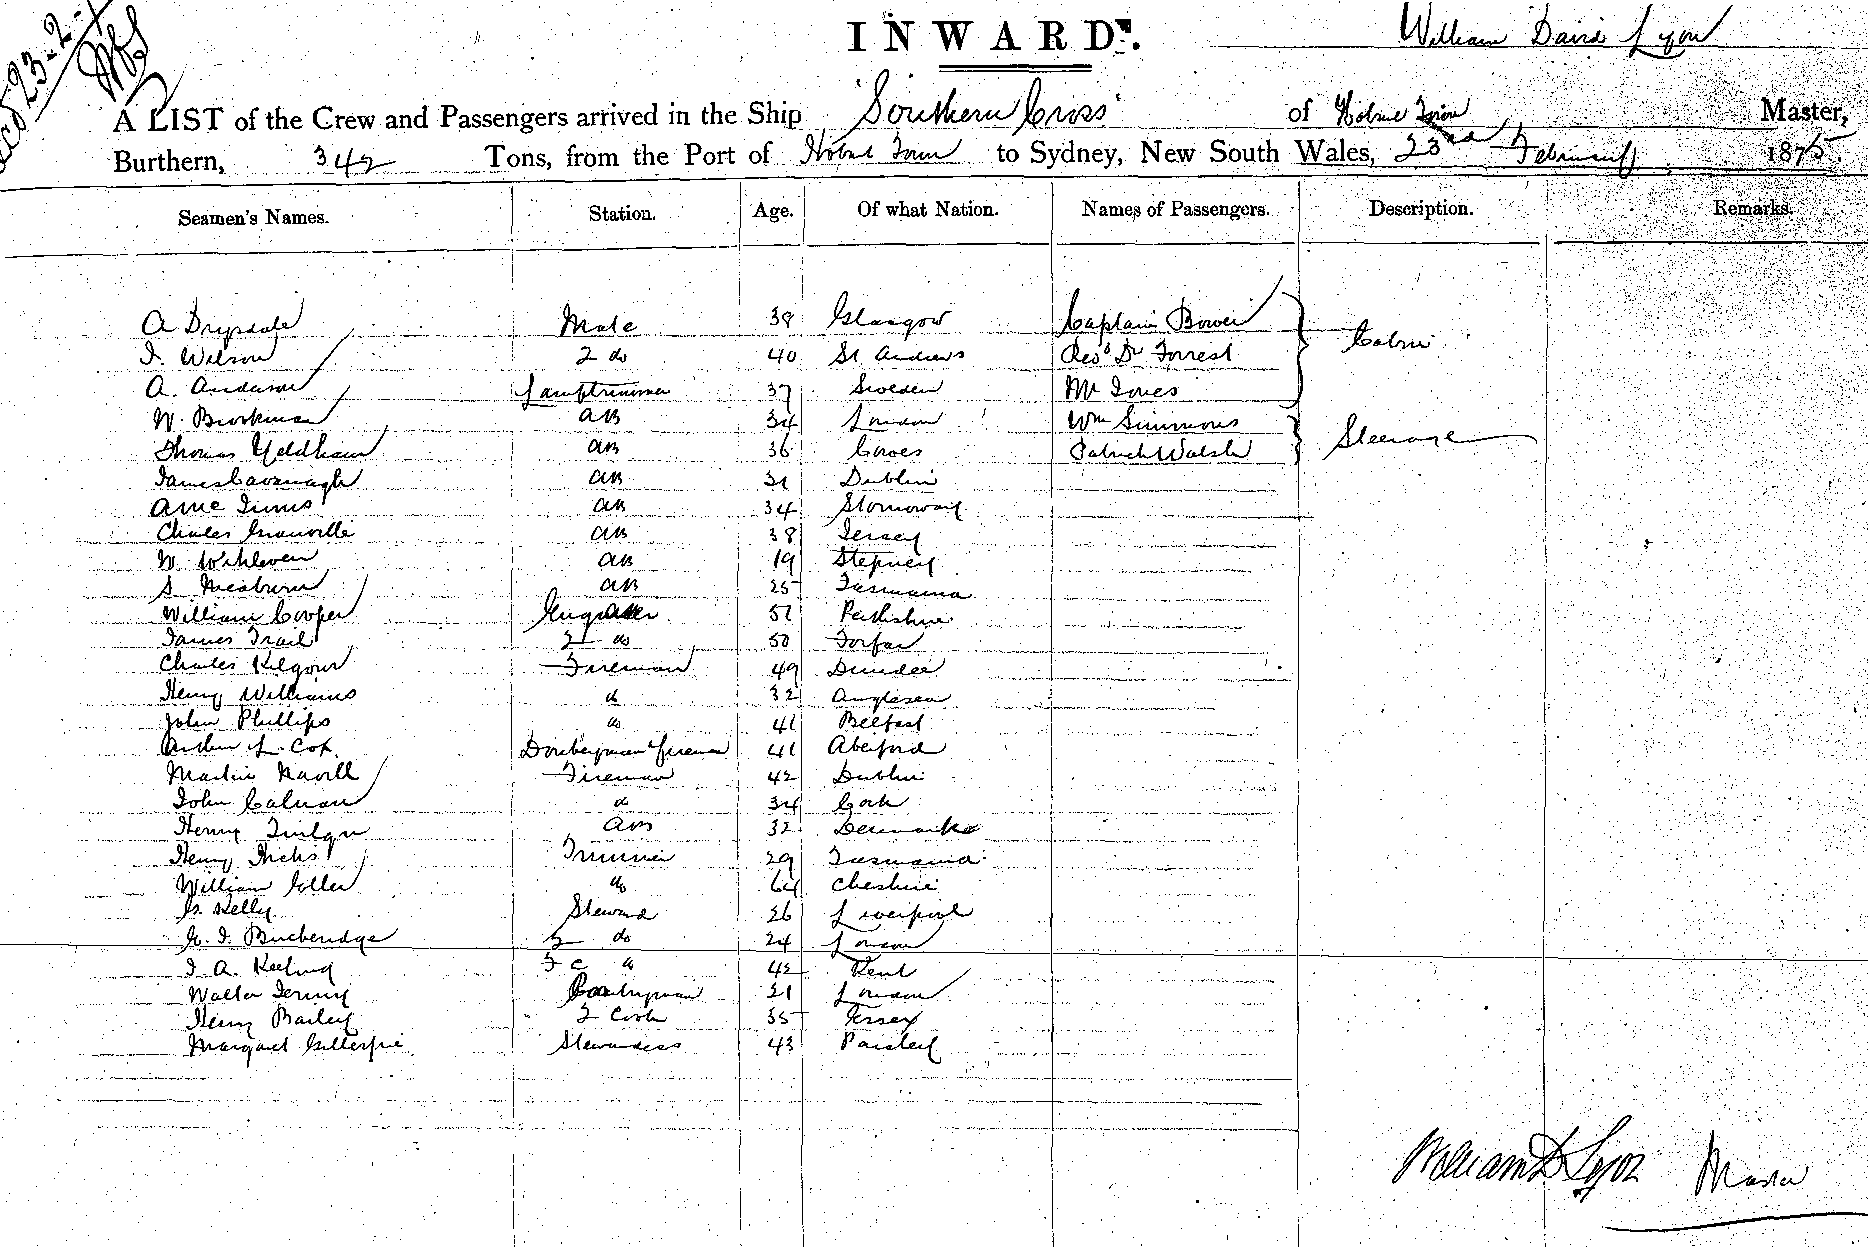 INWARDS.
William David Lyon
A LIST of the Crew and Passengers arrived in the Ship "Southern Cross" of Hobart Town Master,
Burthern, 342 Tons, from the Port of Hobart Town to Sydney, New South Wales, 23rd February 1875.
Seamen's Names. Station. Age. Of what Nation. Names of Passengers. Description. Remarks.
A Drysdale Mate 39 Glasgow Captain Bower Cabin
J. Wilson 2 do 40 St Andrews Revd Dr Forrest
A. Anderson Lamptrimmer 37 Sweden Mr Jones
W. Brookman AB 34 London Wm Simmons Steerage
Thomas Yeldham AB 36 Cowes Patrick Walsh
James Cavanagh AB 31 Dublin
AB 34 Stornoway
Charles Granville AB 38 Jersey
W. AB 19 Stepney
S. AB 25 Tasmania
William Cooper Engineer 51 Perthshire
James Trail 2 do 50 Forfar
Charles Kilgour Fireman 49 Dundee
Henry Williams do 32 Anglesea
John Phillips do 41 Belfast
Arthur L. Cox Donkeyman & fireman 41 Aberford
Martin Fireman 42 Dublin
John Calnan do 34 Cork
Henry AB 32 Denmark
Henry Hicks Trimmer 29 Tasmania
William Goller do 64 Cheshire
G. Kelly Steward 26 Liverpool
G. J. Buckeridge 2 do 24 London
J A. Keeling F C do 42 Kent
Walter Jenny Pantryman 21 London
Henry Bailey 2 Cook 35 Jersey
Margaret Gillespie Stewardess 43 Paisley
William D Lyon Master